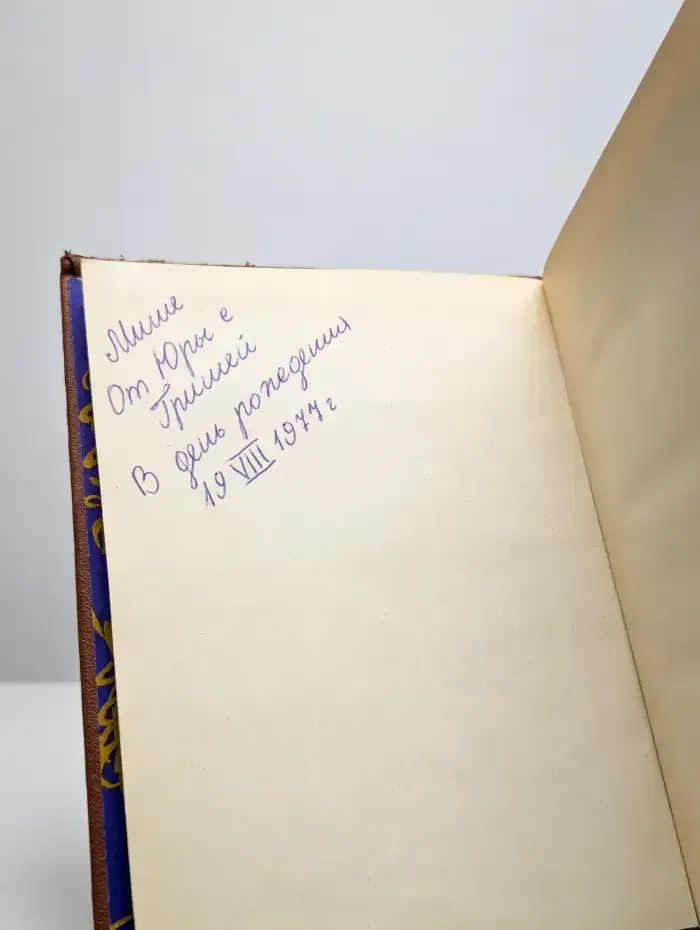 Мише
От Юры с
Гришей
В день рождения
19 VIII 1977 г